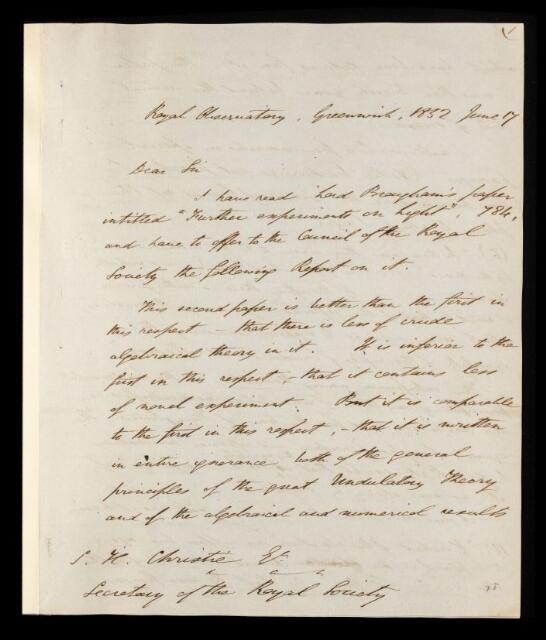 Royal Observatory, Greenwich, 1852 June 17
Dear Sir
I have read Lord Brougham's paper
intitled "Further experiments on Light", 784,
and have to offer to the Council of the Royal
Society the following Report on it.
This second paper is better than the first in
this respect - that there is less of crude
algebraical theory in it. It is inferior to the
first in this respect, - that it contains less
of novel experiment. But it is comparable
to the first in this respect, - that it is written
in entire ignorance both of the general
principles of the great Undulatory Theory
and of the algebraical and numerical results
S. H. Christie Esq
Secretary of the Royal Society